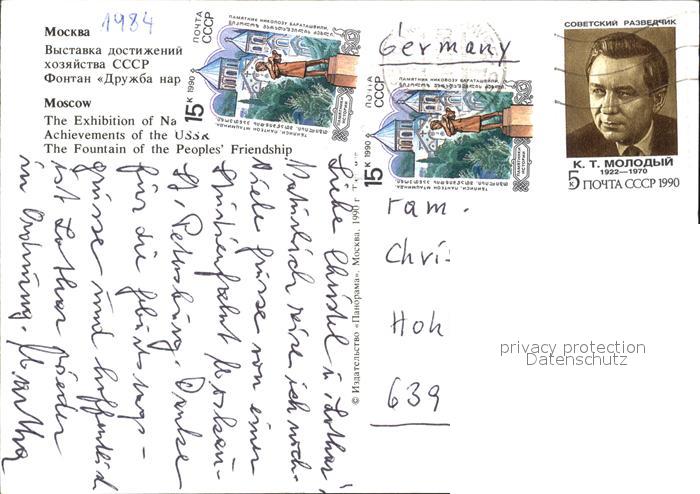 1984
Москва
Выставка достижений
хозяйства СССР
Фонтан «Дружба нар
Moscow
The Exhibition of Na
Achievements of the USSR
The Fountain of the Peoples' Friendship
Liebe Christel u. Lothar!
Natürlich reise ich noch.
Viele Grüsse von einer
Moskau-
St. Petersburg. Danke
für die Geburtstags-
grüsse und hoffentlich
ist Lothar wieder
in Ordnung.
© Издательство «Панорама». Москва, 1990 г.
ПОЧТА СССР
15 к 1990
ПАМЯТНИК НИКОЛОЗУ БАРАТАШВИЛИ,
ПАМЯТНИКИ ИСТОРИИ
ПОЧТА СССР
15 к 1990
ПАМЯТНИК НИКОЛОЗУ БАРАТАШВИЛИ,
ТБИЛИСИ, ПАНТЕОН МТАЦМИНДА.
ПАМЯТНИКИ ИСТОРИИ
СОВЕТСКИЙ РАЗВЕДЧИК
К. Т. МОЛОДЫЙ
1922—1970
5 к ПОЧТА СССР 1990
Germany
Fam.
Chri
Hoh
639
privacy protection
Datenschutz